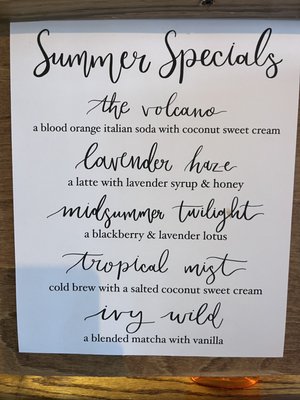 Summer Specials
the volcano
a blood orange italian soda with coconut sweet cream
lavender haze
a latte with lavender syrup & honey
midsummer twilight
a blackberry & lavender lotus
tropical mist
cold brew with a salted coconut sweet cream
ivy wild
a blended matcha with vanilla